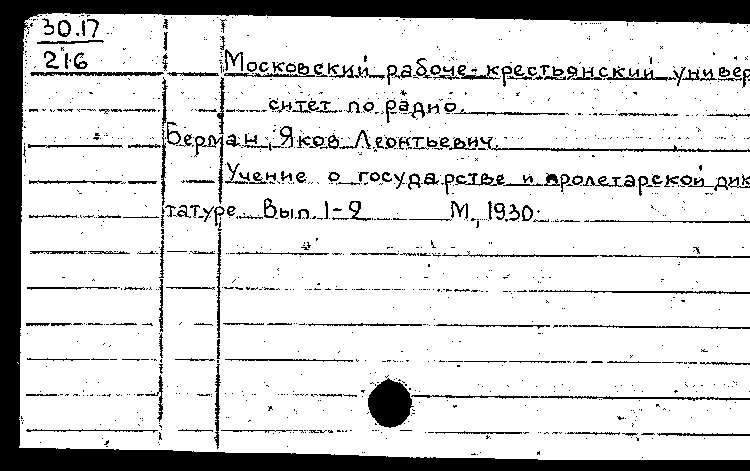 30.17
216
Московский рабоче-крестьянский универ
ситет по радио.
Берман, Яков Леонтьевич.
Учение о государстве и пролетарской дик
татуре. Вып. 1-2 М., 1930.